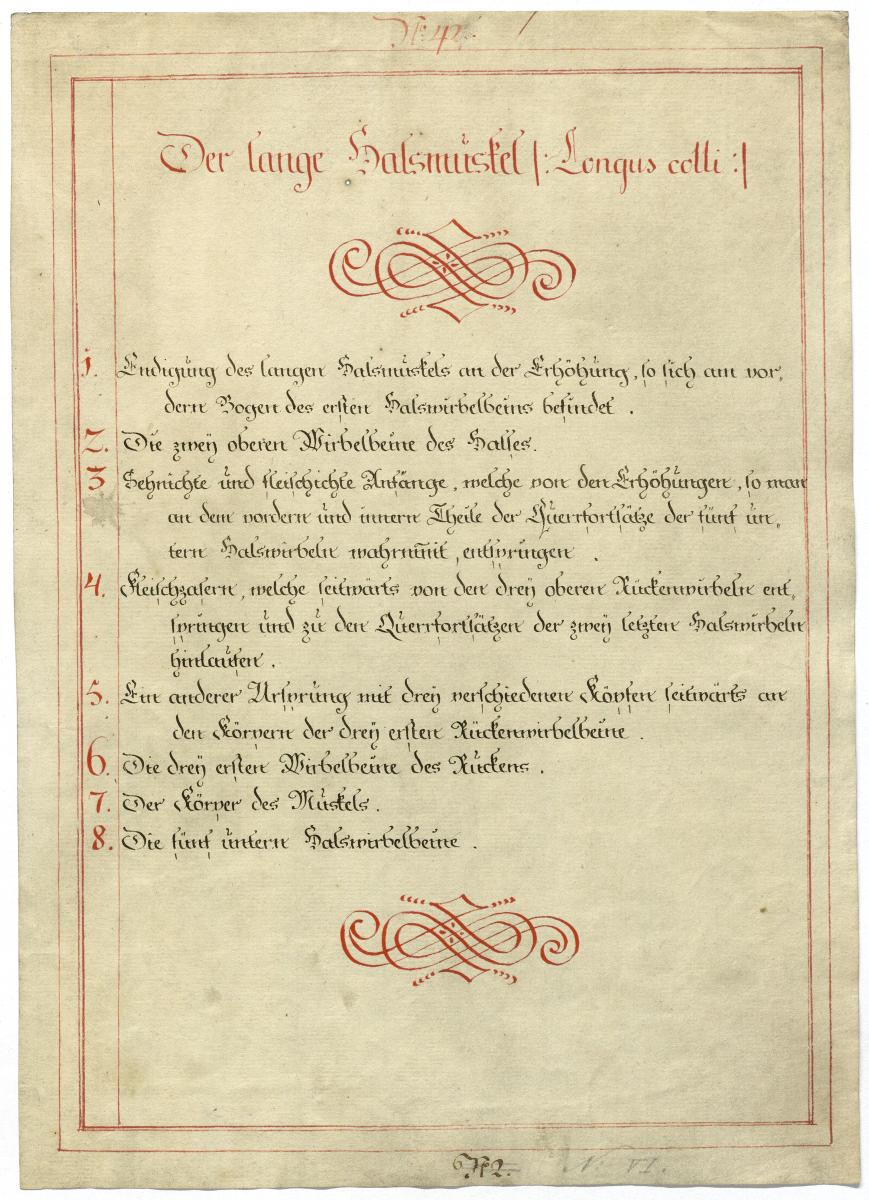 N: 42.
Der lange Halsmuskel |: Longus colli :|
1. Endigung des langen Halsmuskels an der Erhöhung, so sich am vor„
dern Bogen des ersten Halswirbelbeins befindet .
2. Die zwey oberen Wirbelbeine des Halses.
3 Sehnichte und fleischichte Anfänge, welche von den Erhöhungen, so man
an dem vordern und innern Theile der Querrfortsätze der fünf un„
tern Halswirbeln wahrnim̄t, entspringen .
4. Fleischzasern, welche seitwärts von den drey oberen Rückenwirbeln ent„
springen und zu den Querrfortsätzen der zwey letzten Halswirbeln
hinlaufen .
5. Ein anderer Ursprung mit drey verschiedenen Köpfen seitwärts an
den Körpern der drey ersten Rückenwirbelbeine .
6. Die drey ersten Wirbelbeine des Rückens .
7. Der Körper des Muskels .
8. Die fünf untern Halswirbelbeine .
N: VI.